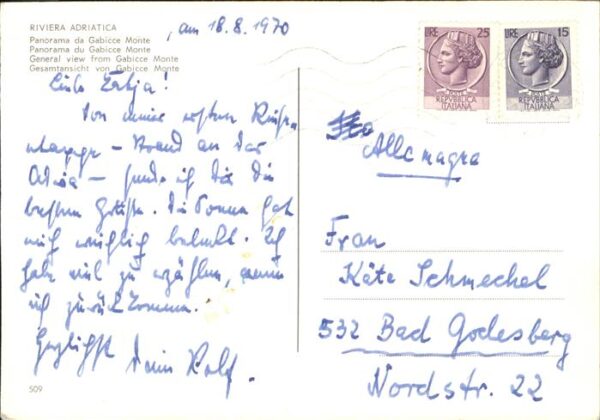 RIVIERA ADRIATICA
Panorama da Gabicce Monte
Panorama du Gabicce Monte
General view from Gabicce Monte
Gesamtansicht von Gabicce Monte
, am 18.8.1970
Liebe Katja!
Von meiner ersten
– Brand an der
Adria – sende ich dir die
besten Grüße. Die Sonne hat
mich reichlich bedacht. Ich
habe viel zu erzählen, wenn
ich zurück komme.
Herzlichst
Dein Rolf.
509
LIRE 25
REPVBBLICA
ITALIANA
LIRE 15
REPVBBLICA
ITALIANA
Allemagna
Frau
Käte Schmechel
532 Bad Godesberg
Nordstr. 22